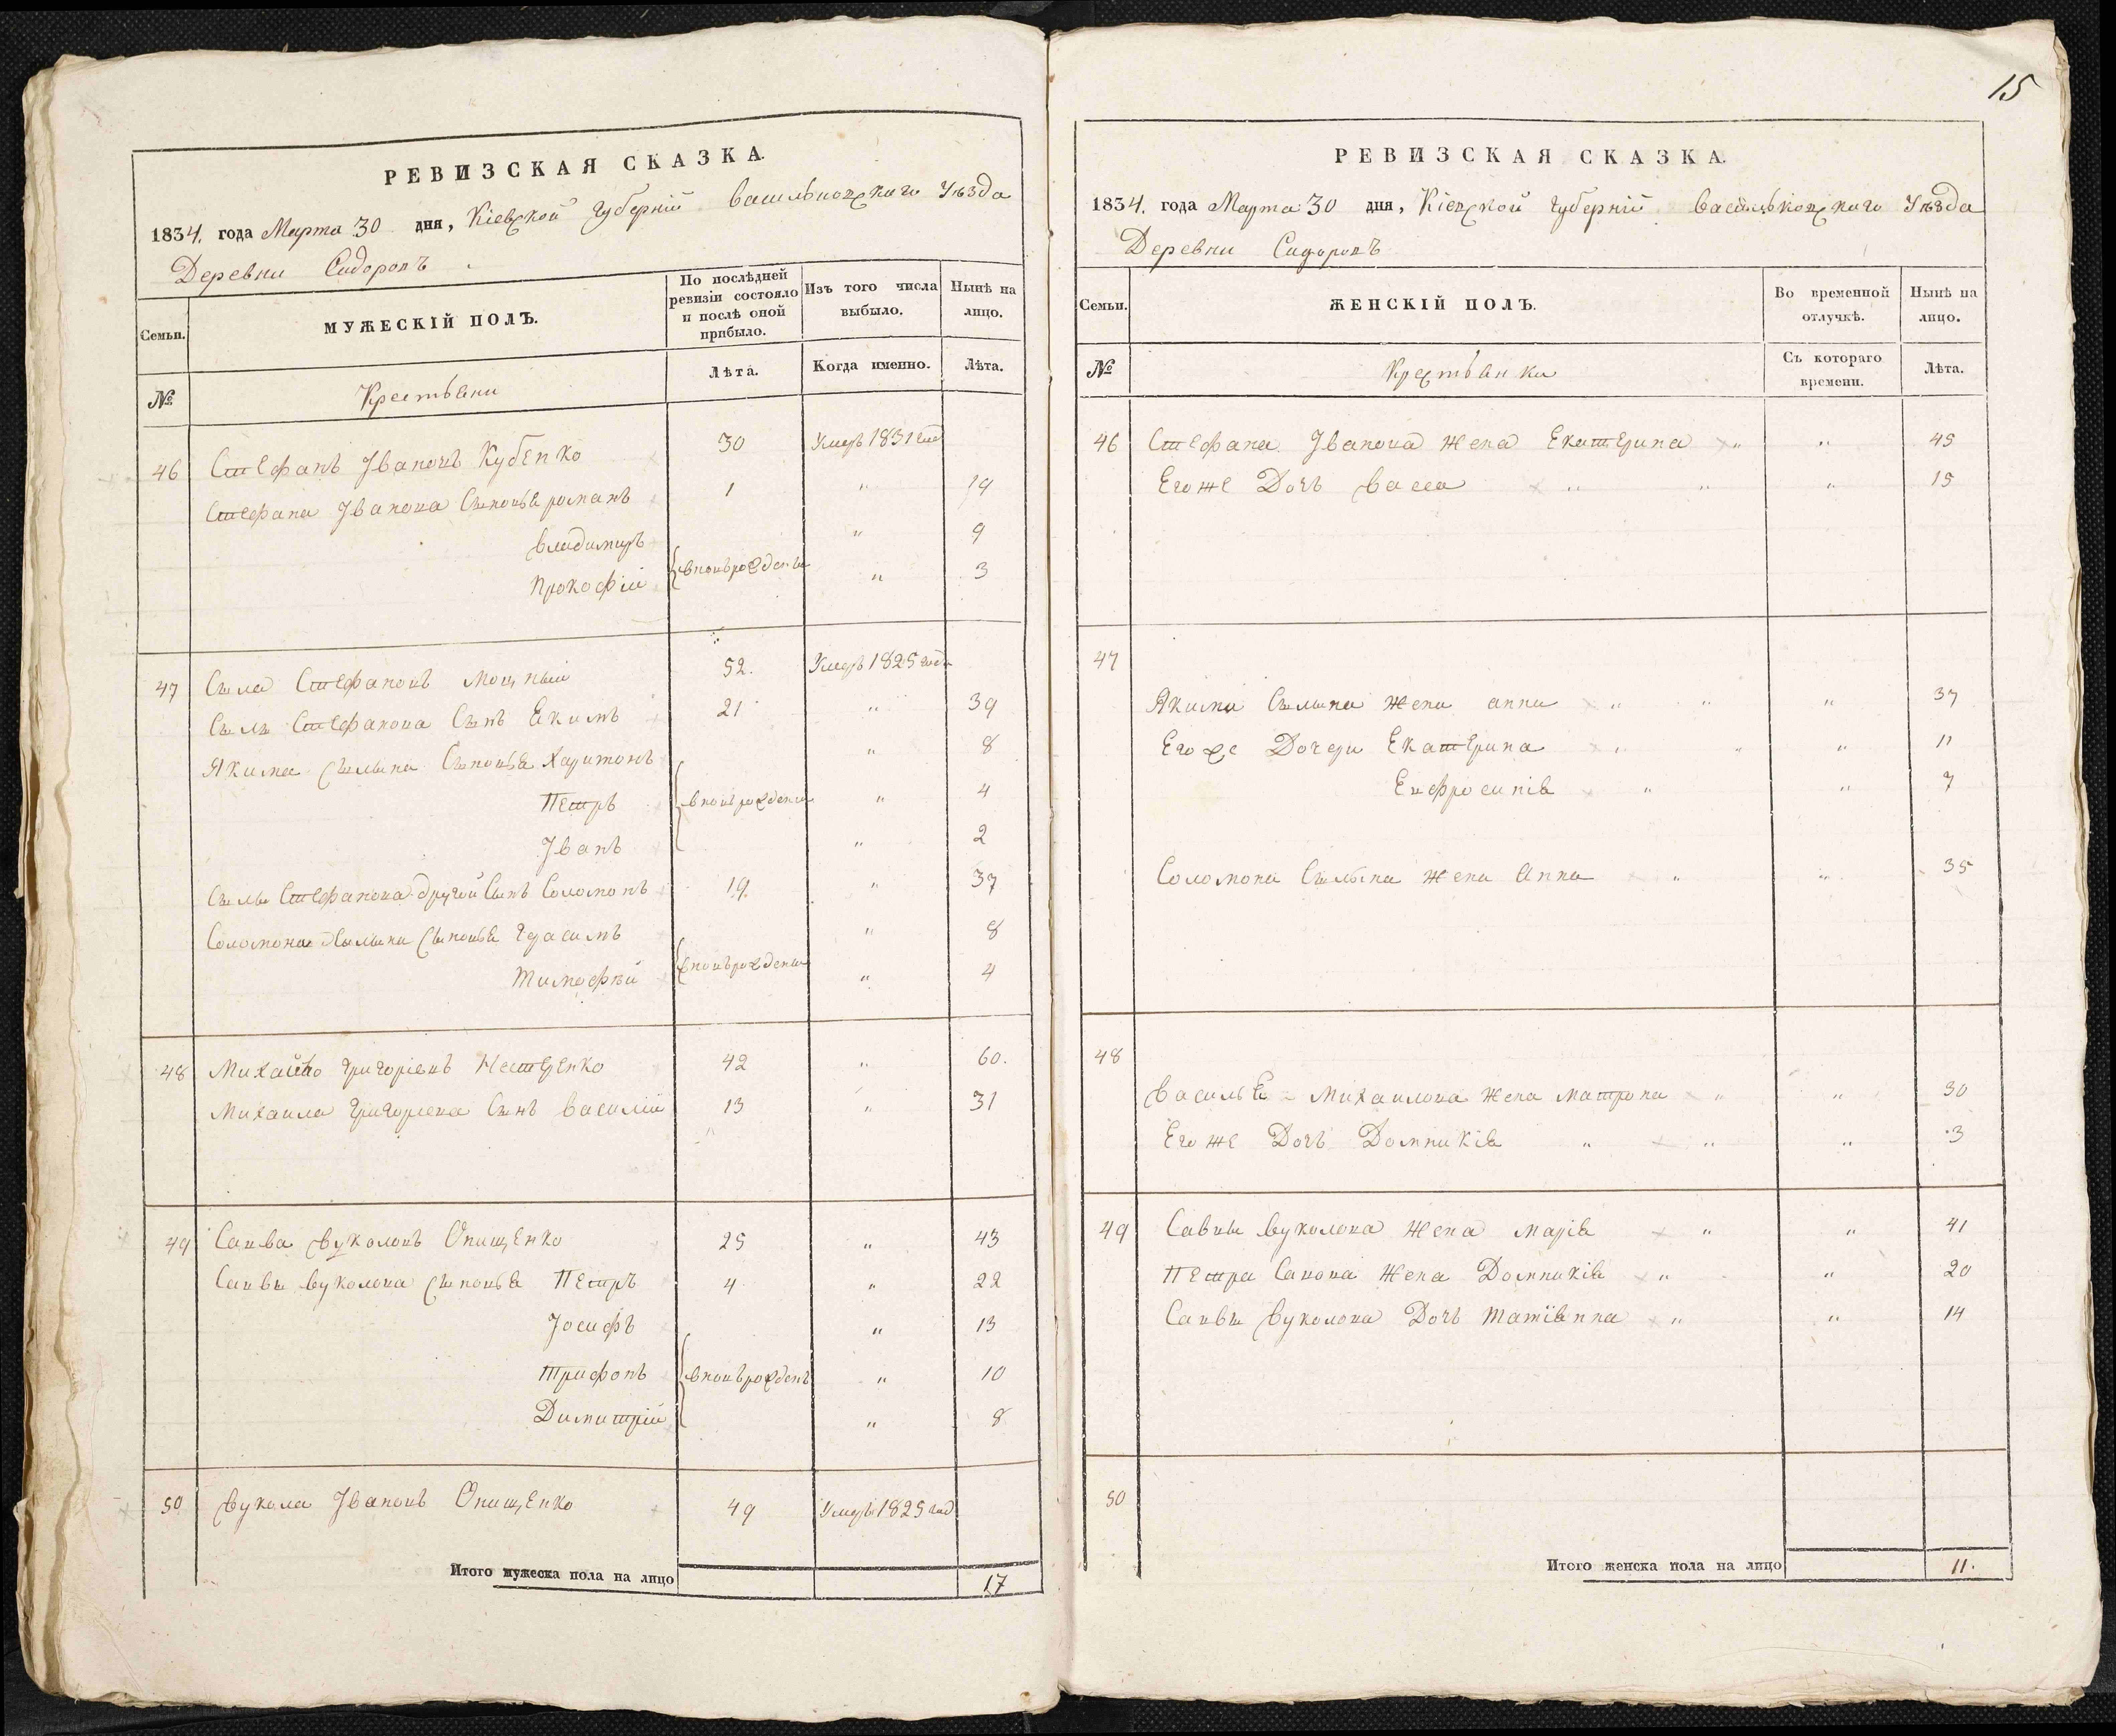 РЕВИЗСКАЯ СКАЗКА.
1834. года Марта 30 дня, Кіевской Губерніи Васильковскаго Уѣзда
Деревни Сидоровъ
Семьи. МУЖЕСКІЙ ПОЛЪ. По послѣдней ревизіи состояло и послѣ оной прибыло. Изъ того числа выбыло. Нынѣ на лицо.
№ Крестьяни Лѣта. Когда именно. Лѣта.
46 Стефанъ Івановъ Кубенко 30 Умеръ 1831 год
Стефана Іванова Сыновья романъ 1 " 19
Владимиръ " 9
Прокофій вновьрожденъ " 3
47 Сыла Стефановъ Мощный 52. Умеръ 1825 года
Сылы Стефанова Сынъ Якимъ 21 " 39
Якима Сылына Сыновья Харитонъ " 8
Петръ вновьрожденъ " 4
Іванъ " 2
Сылы Стефанова другой Сынъ Соломонъ 19 " 37
Соломона Сылына Сыновья Герасимъ " 8
Тимофѣй вновьрожденъ " 4
48 Михайло Григоріевъ Нестеренко 42 " 60.
Михаила Григориева Сынъ Василій 13 " 31
49 Савва Вуколовъ Онищенко 25 " 43
Саввы Вуколова Сыновья Петръ 4 " 22
Іосифъ " 13
Трифонъ вновьрожденъ " 10
Димитрій " 8
50 Вукола Івановъ Онищенко 49 Умеръ 1825 год
Итого мужеска пола на лицо 17
15
РЕВИЗСКАЯ СКАЗКА.
1834. года Марта 30 дня, Кіевской Губерніи Васильковскаго Уѣзда
Деревни Сидоровъ
Семьи. ЖЕНСКІЙ ПОЛЪ. Во временной отлучкѣ. Нынѣ на лицо.
№ Крестьянки Съ котораго времени. Лѣта.
46 Стефана Іванова жена Екатерина " " 45
Егоже Дочъ Васса " " " 15
47
Якима Сылына жена анна " " " 37
Егоже Дочери Екатерина " " " 11
Ефросинія " " 7
Соломона Сылына жена Анна " " 35
48
Василья Михаилова жена матрона " " 30
Егоже Дочъ Домникія " " " 3
49 Саввы Вуколова жена марія " " 41
Петра Савова жена Домникія " " 20
Саввы Вуколова Дочъ татіянна " " 14
50
Итого женска пола на лицо 11.